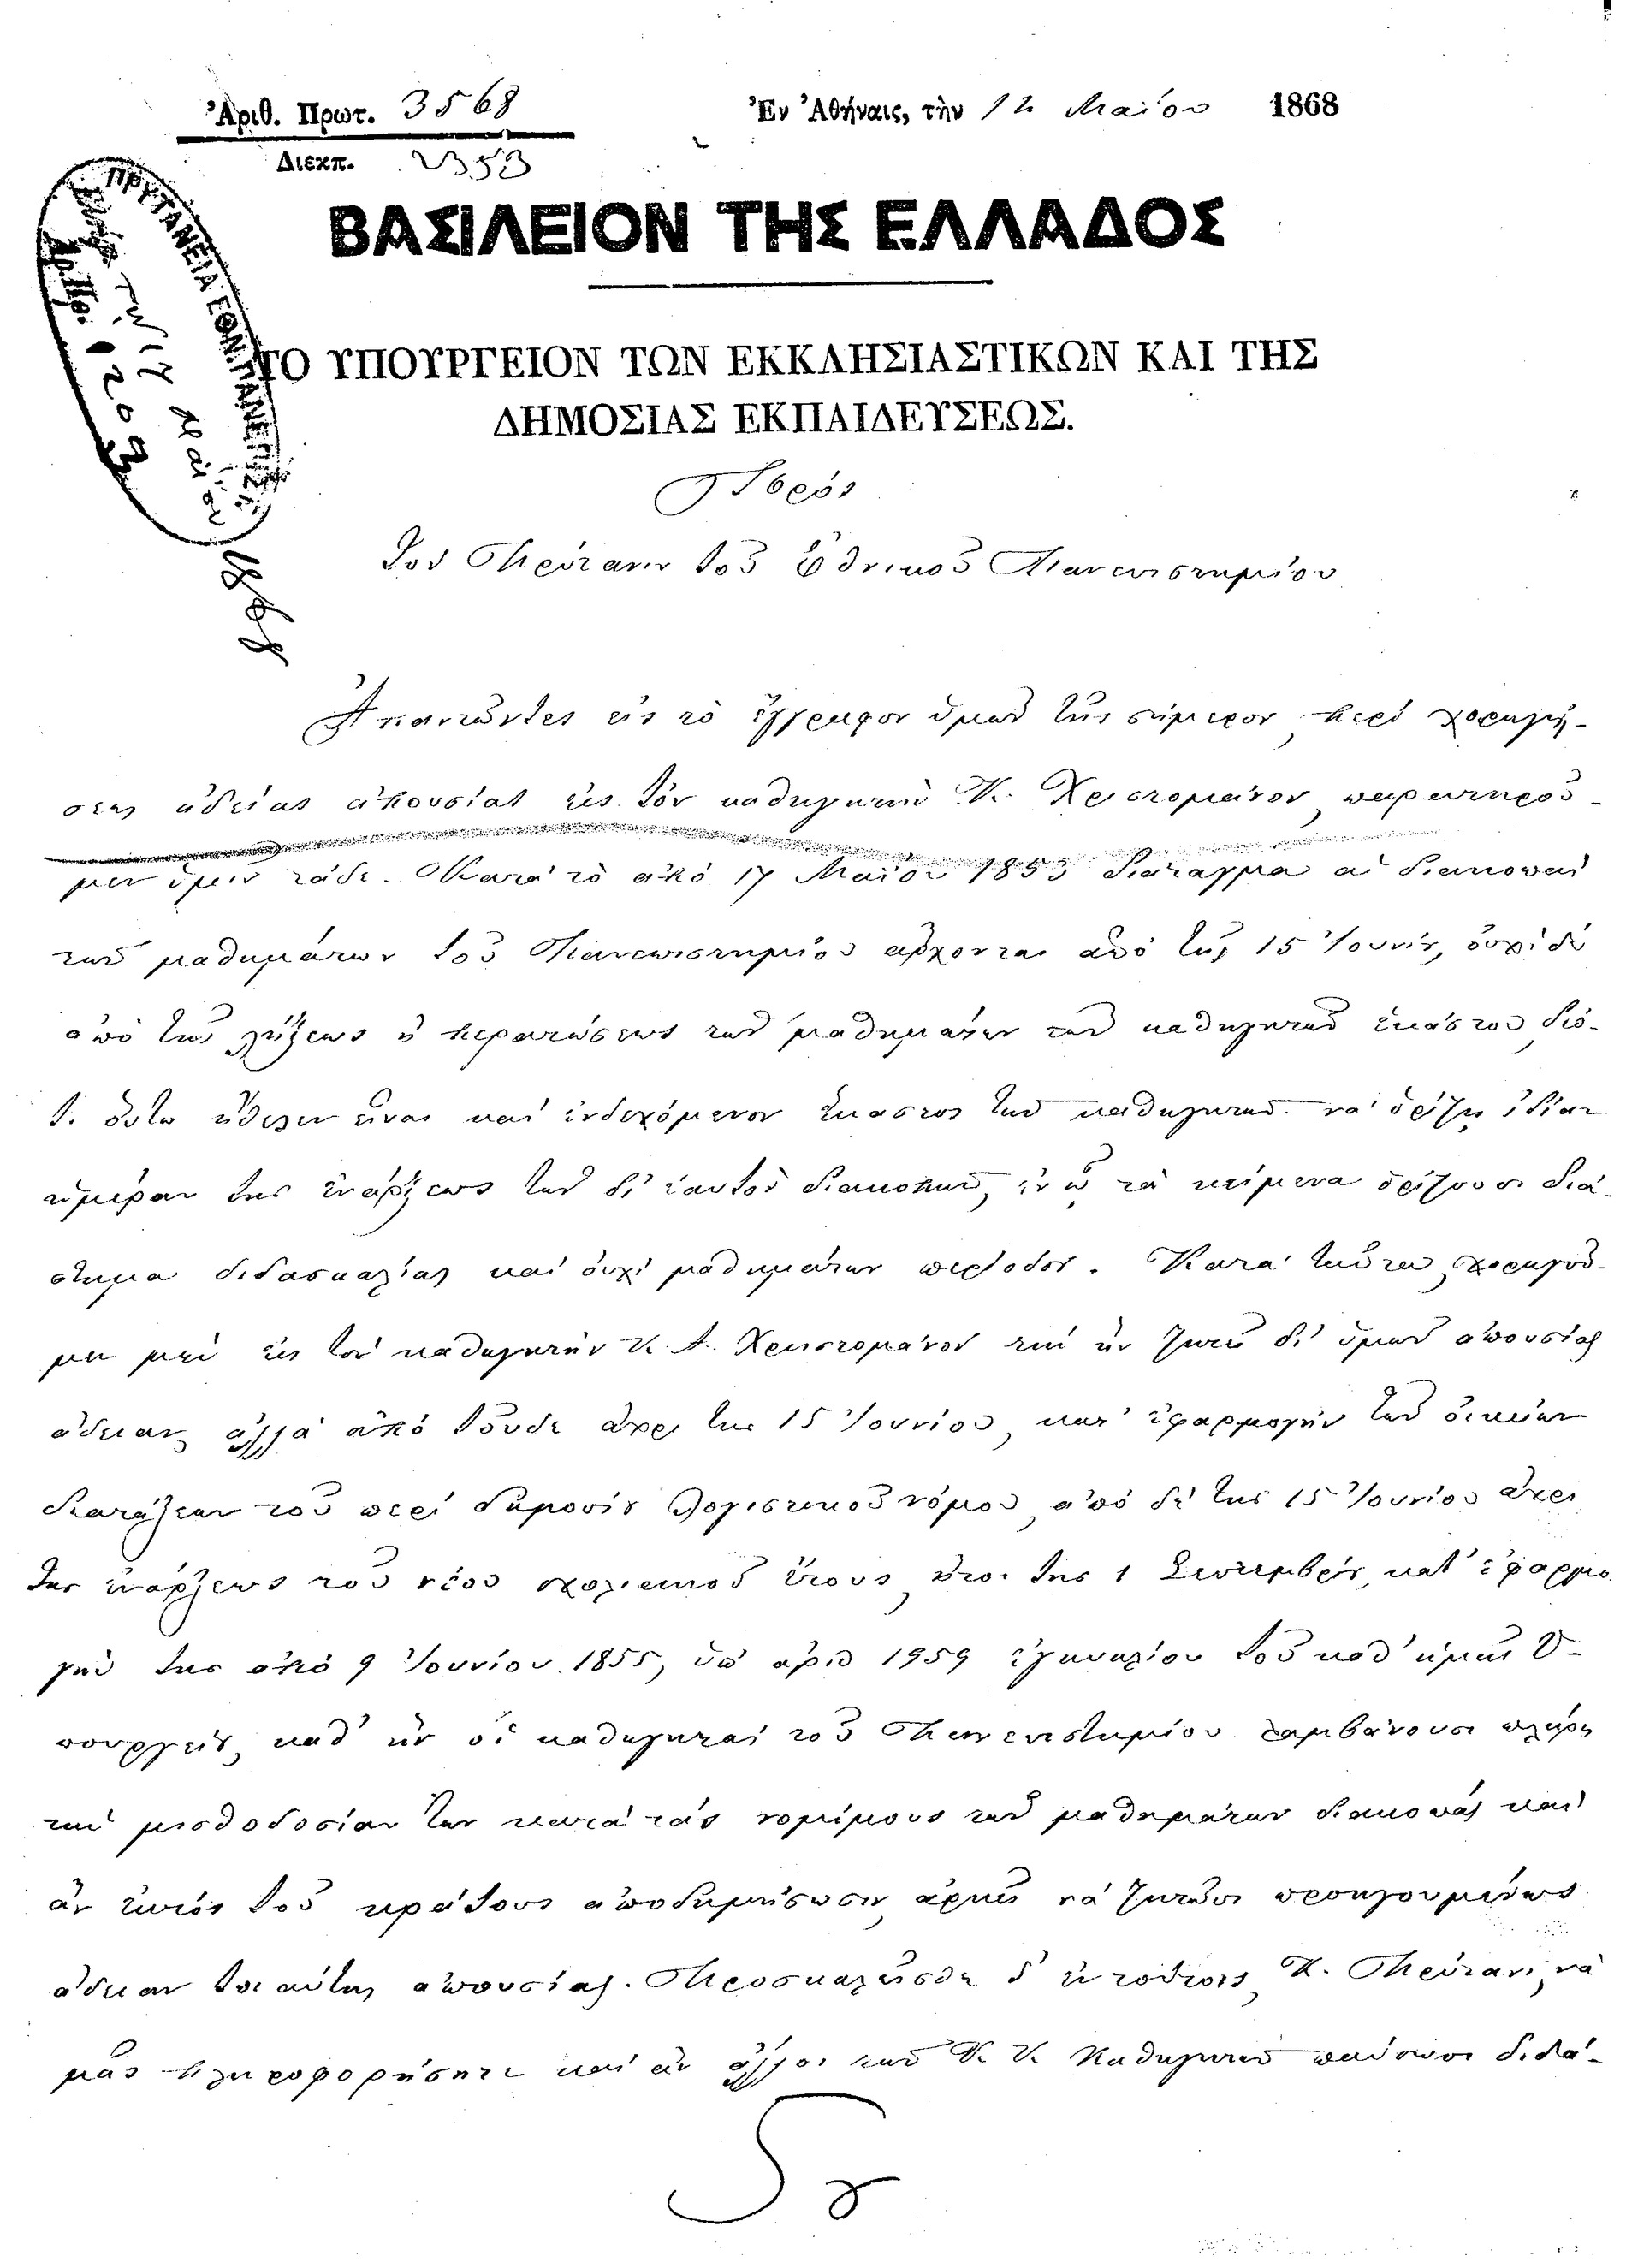 Ἀριθ. Πρωτ. 3568
Διεκπ. 2353
Ἐν Ἀθήναις, τὴν 12 Μαΐου 1868
ΠΡΥΤΑΝΕΙΑ ΕΘΝ. ΠΑΝΕΠΙΣ
Ἀρ. Πρ. 1203
τὴν 17 Μαΐου
1868
ΒΑΣΙΛΕΙΟΝ ΤΗΣ ΕΛΛΑΔΟΣ
ΤΟ ΥΠΟΥΡΓΕΙΟΝ ΤΩΝ ΕΚΚΛΗΣΙΑΣΤΙΚΩΝ ΚΑΙ ΤΗΣ
ΔΗΜΟΣΙΑΣ ΕΚΠΑΙΔΕΥΣΕΩΣ.
Πρὸς
τὸν Πρύτανιν τοῦ Ἐθνικοῦ Πανεπιστημίου
Ἀπαντῶντες εἰς τὸ ἔγγραφον ὑμῶν τῆς σήμερον, περὶ χορηγή-
σεως ἀδείας ἀπουσίας εἰς τὸν καθηγητὴν Κ. Χρηστομάνον, παρατηροῦ-
μεν ὑμῖν τάδε. Κατὰ τὸ ἀπὸ 17 Μαΐου 1853 διάταγμα αἱ διακοπαὶ
τῶν μαθημάτων τοῦ Πανεπιστημίου ἄρχονται ἀπὸ τῆς 15 Ἰουνίου, οὐχὶ δὲ
ἀπὸ τῆς λήξεως ἢ περατώσεως τῶν μαθημάτων τῶν καθηγητῶν ἑκάστου, διό-
τι οὕτω ἤθελεν εἶναι καὶ ἐνδεχόμενον ἕκαστος τῶν καθηγητῶν νὰ ὁρίζῃ ἰδίαν
ἡμέραν τῆς ἐνάρξεως τῶν δι' ἑαυτὸν διακοπῶν, ἐν ᾧ τὰ κείμενα ὁρίζουσι διά-
στημα διδασκαλίας καὶ οὐχὶ μαθημάτων περίοδον. Κατὰ ταῦτα, χορηγοῦ-
μεν μὲν εἰς τὸν καθηγητὴν Κ. Α. Χρηστομάνον τὴν ἣν ζητεῖ δι' ὑμῶν ἀπουσίας
ἄδειαν, ἀλλὰ ἀπὸ τοῦδε ἄχρι τῆς 15 Ἰουνίου, κατ' ἐφαρμογὴν τῶν οἰκείων
διατάξεων τοῦ περὶ δημοσίου λογιστικοῦ νόμου, ἀπὸ δὲ τῆς 15 Ἰουνίου ἄχρι
τῆς ἐνάρξεως τοῦ νέου σχολιακοῦ ἔτους, ἤτοι τῆς 1 Σεπτεμβρίου, κατ' ἐφαρμο-
γὴν τῆς ἀπὸ 9 Ἰουνίου 1855, ὑπ' ἀριθ 1959 ἐγκυκλίου τοῦ καθ' ἡμᾶς Ὑ-
πουργείου, καθ' ἣν οἱ καθηγηταὶ τοῦ Πανεπιστημίου λαμβάνουσι πλήρη
τὴν μισθοδοσίαν των κατὰ τὰς νομίμους τῶν μαθημάτων διακοπὰς καὶ
ἂν ἐκτὸς τοῦ κράτους ἀποδημήσωσιν, ἀρκεῖ νὰ ζητῶσι προηγουμένως
ἄδειαν τοιαύτης ἀπουσίας. Προσκαλεῖσθε δ' ἐν τούτοις, Κ. Πρύτανι, νὰ
μᾶς πληροφορήσητε καὶ ἂν ἄλλοι τῶν Κ. Κ. Καθηγητῶν παύσωσι διδά-